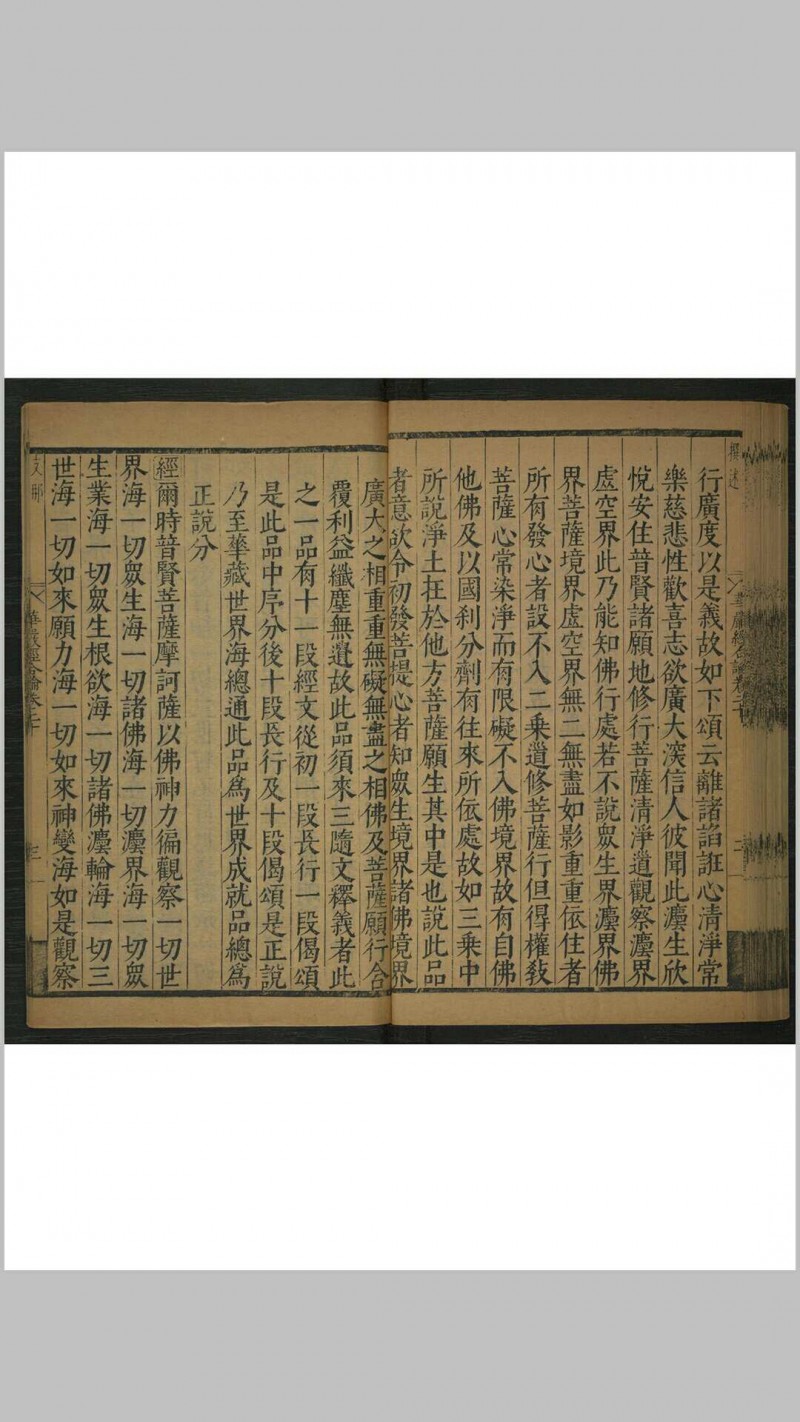 撰述
行廣度以是義故如下頌云離諸諂誑心清淨常
樂慈悲性歡喜志欲廣大深信人彼聞此灋生欣
悅安住普賢諸願地修行菩薩清淨道觀察灋界
虛空界此乃能知佛行處若不說眾生界灋界佛
界菩薩境界虛空界無二無盡如影重重依住者
所有發心者設不入二乘道修菩薩行但得權教
菩薩心常染淨而有限礙不入佛境界故有自佛
他佛及以國剎分劑有往來所依處故如三乘中
所說淨土在於他方菩薩願生其中是也說此品
者意欲令初發菩提心者知眾生境界諸佛境界
廣大之相重重無礙無盡之相佛及菩薩願行含
覆利益纖塵無遺故此品須來三隨文釋義者此
之一品有十一段經文從初一段長行一段偈頌
是此品中序分後十段長行及十段偈頌是正說
乃至華藏世界海總通此品為世界成就品總為
正說分
經爾時普賢菩薩摩訶薩以佛神力徧觀察一切世
界海一切眾生海一切諸佛海一切灋界海一切眾
生業海一切眾生根欲海一切諸佛灋輪海一切三
世海一切如來願力海一切如來神變海如是觀察